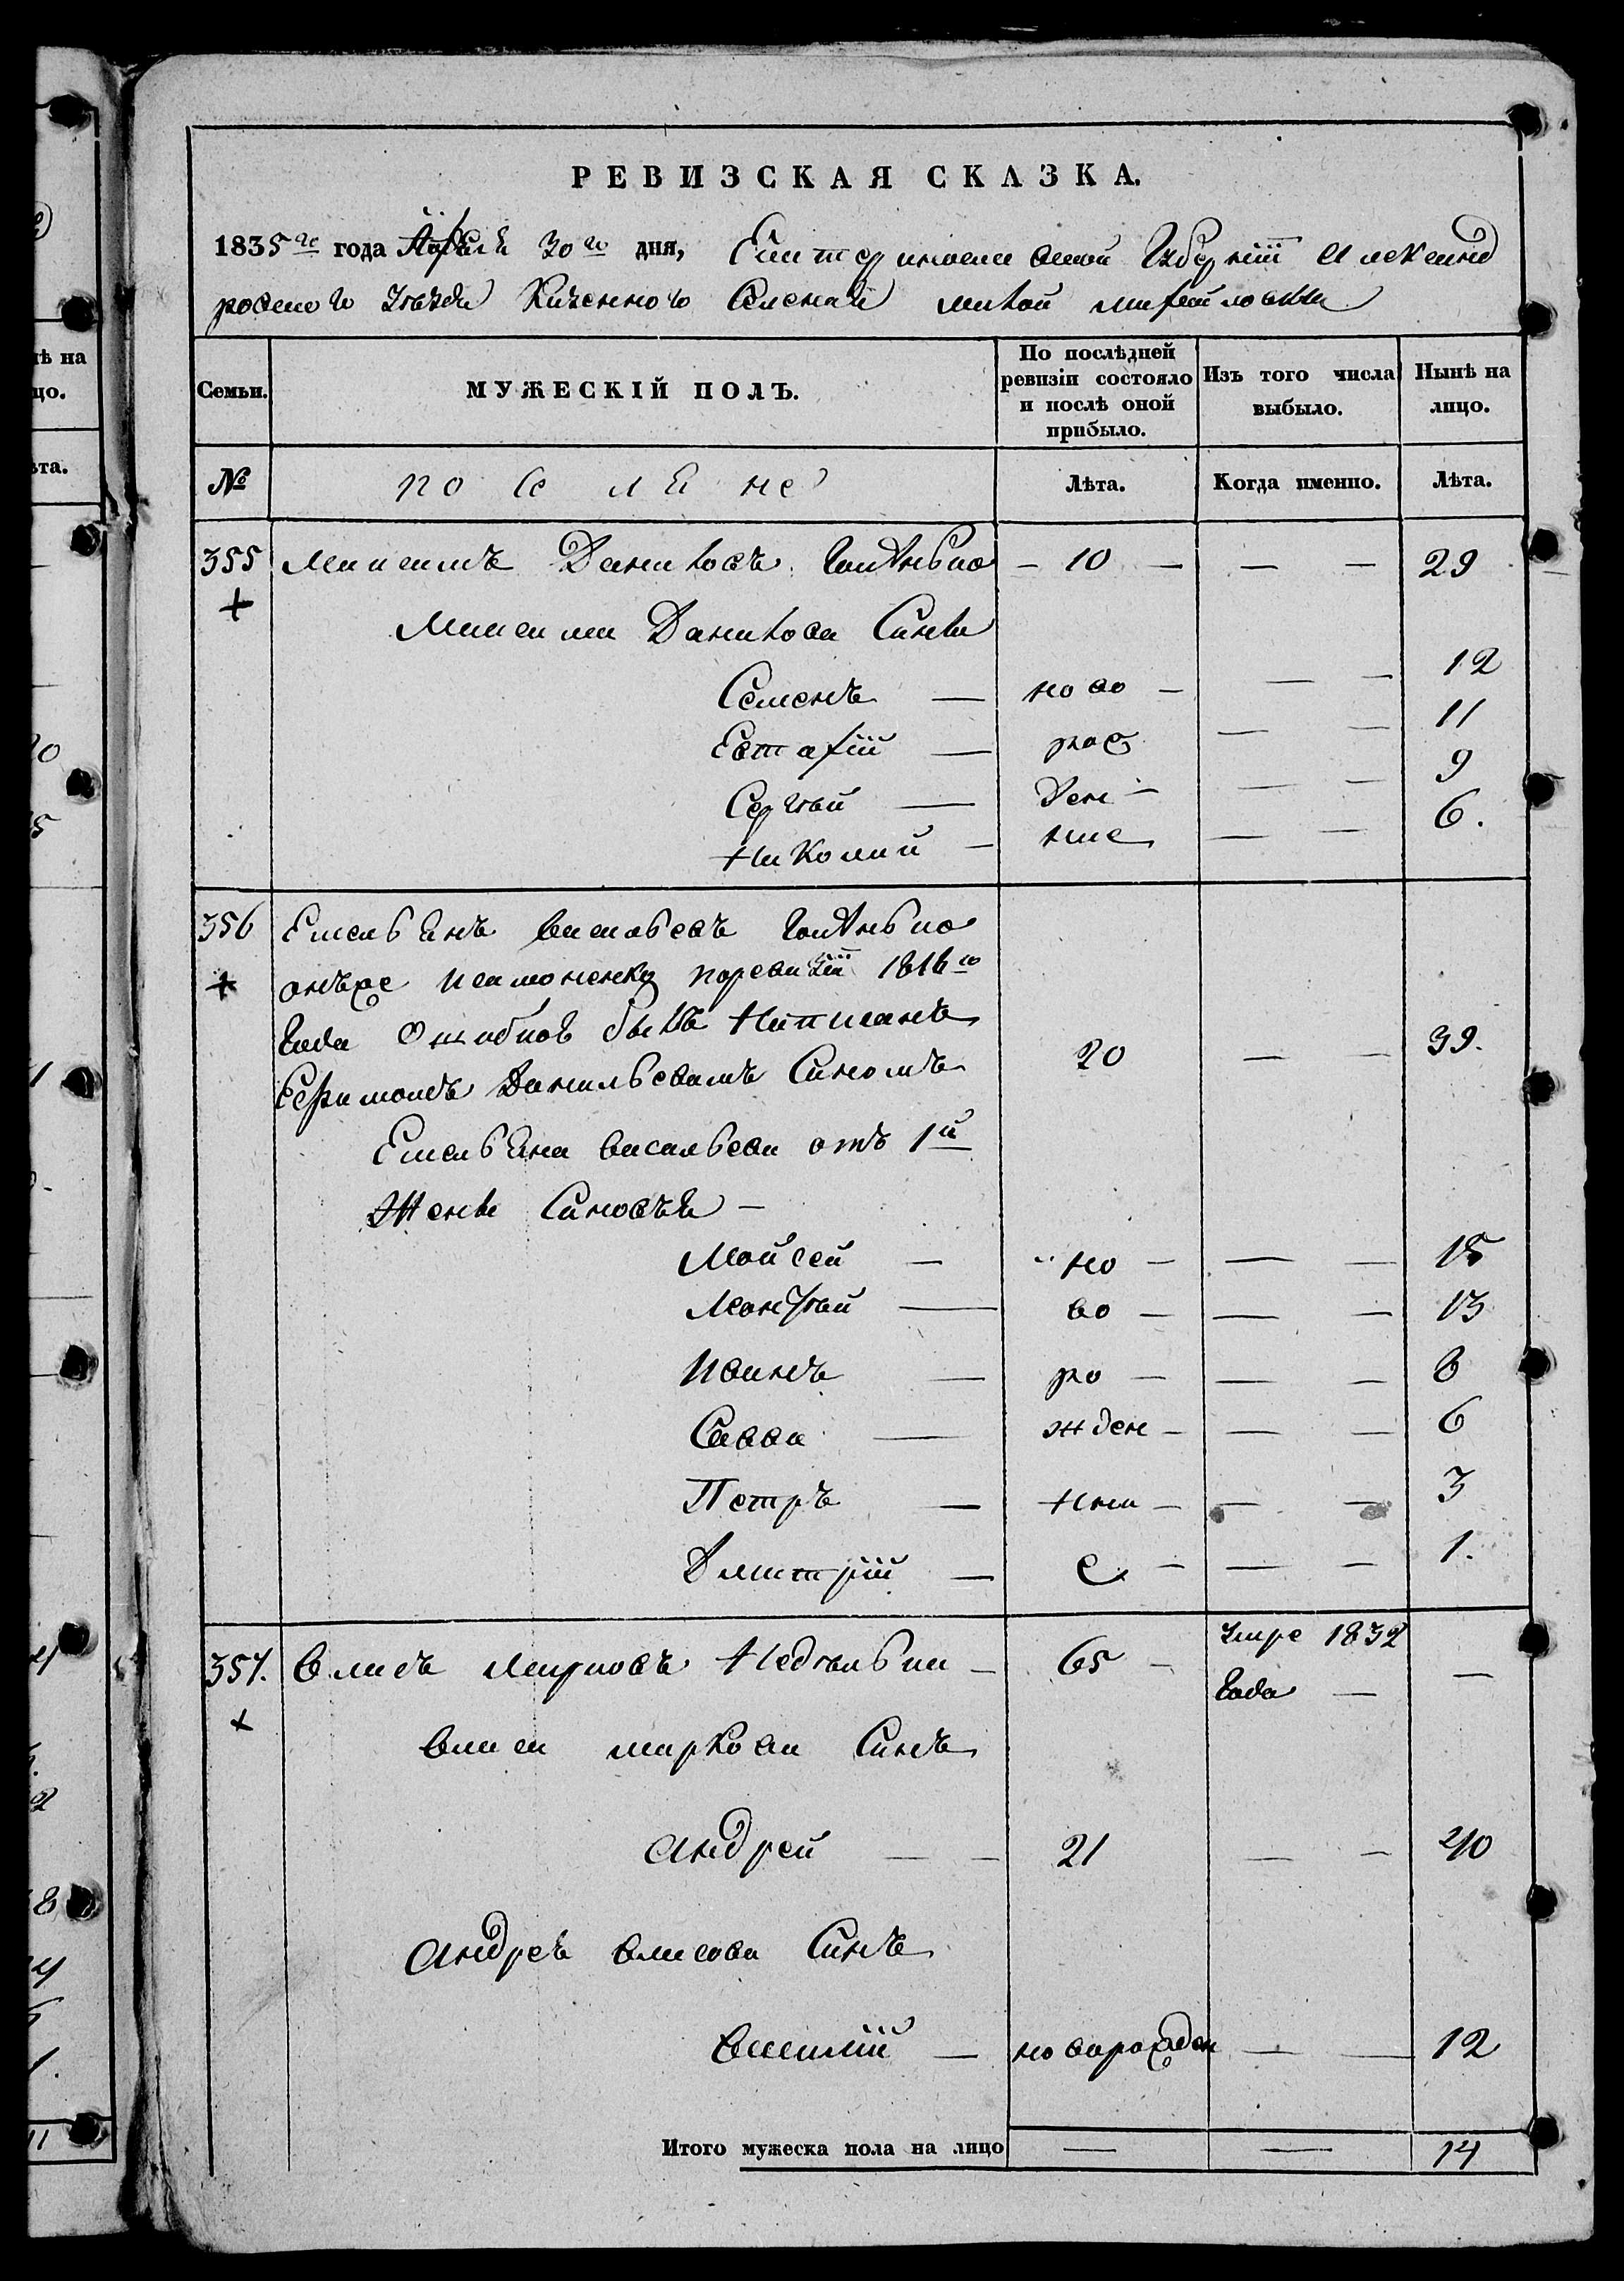 РЕВИЗСКАЯ СКАЗКА.
1835 го года Апреля 30 го дня, Екатеринославской Губернiи Александ
ровского уезда казенного Селения малой михайловки
Семьи. МУЖЕСКІЙ ПОЛЪ. По послѣдней ревизіи состояло и послѣ оной прибыло. Изъ того числа выбыло. Нынѣ на лицо.
№ поселяне Лѣта. Когда именно. Лѣта.
355 Максимъ Даниловъ — 10 — — — 29
+
Максима Данилова Сины
Семенъ — ново — — — 12
Естафiй — рож — — 11
Сергѣй — ден — — — 9
Николай — ные — — 6.
356 Емельянъ васильевъ
+ онъже поревизiи 1816 го
года ошибкою былъ написанъ
Данильевамъ Синомъ 20 — — 39.
Емельяна васильева отъ 1й
жены Синовья —
Мойсей — но — — — 15
— во — — — 13
Иванъ — ро — — — 8
Савва — жден — — — 6
Петръ — ны — — — 3
Дмитрiй — е — — — 1.
357. власъ Марковъ — 65 — умре 1832 —
+ года —
власа маркова Синъ
Андрей — — 21 — — 40
Андрея власова Синъ
василiй — новорожден — — 12
Итого мужеска пола на лицо — — 14